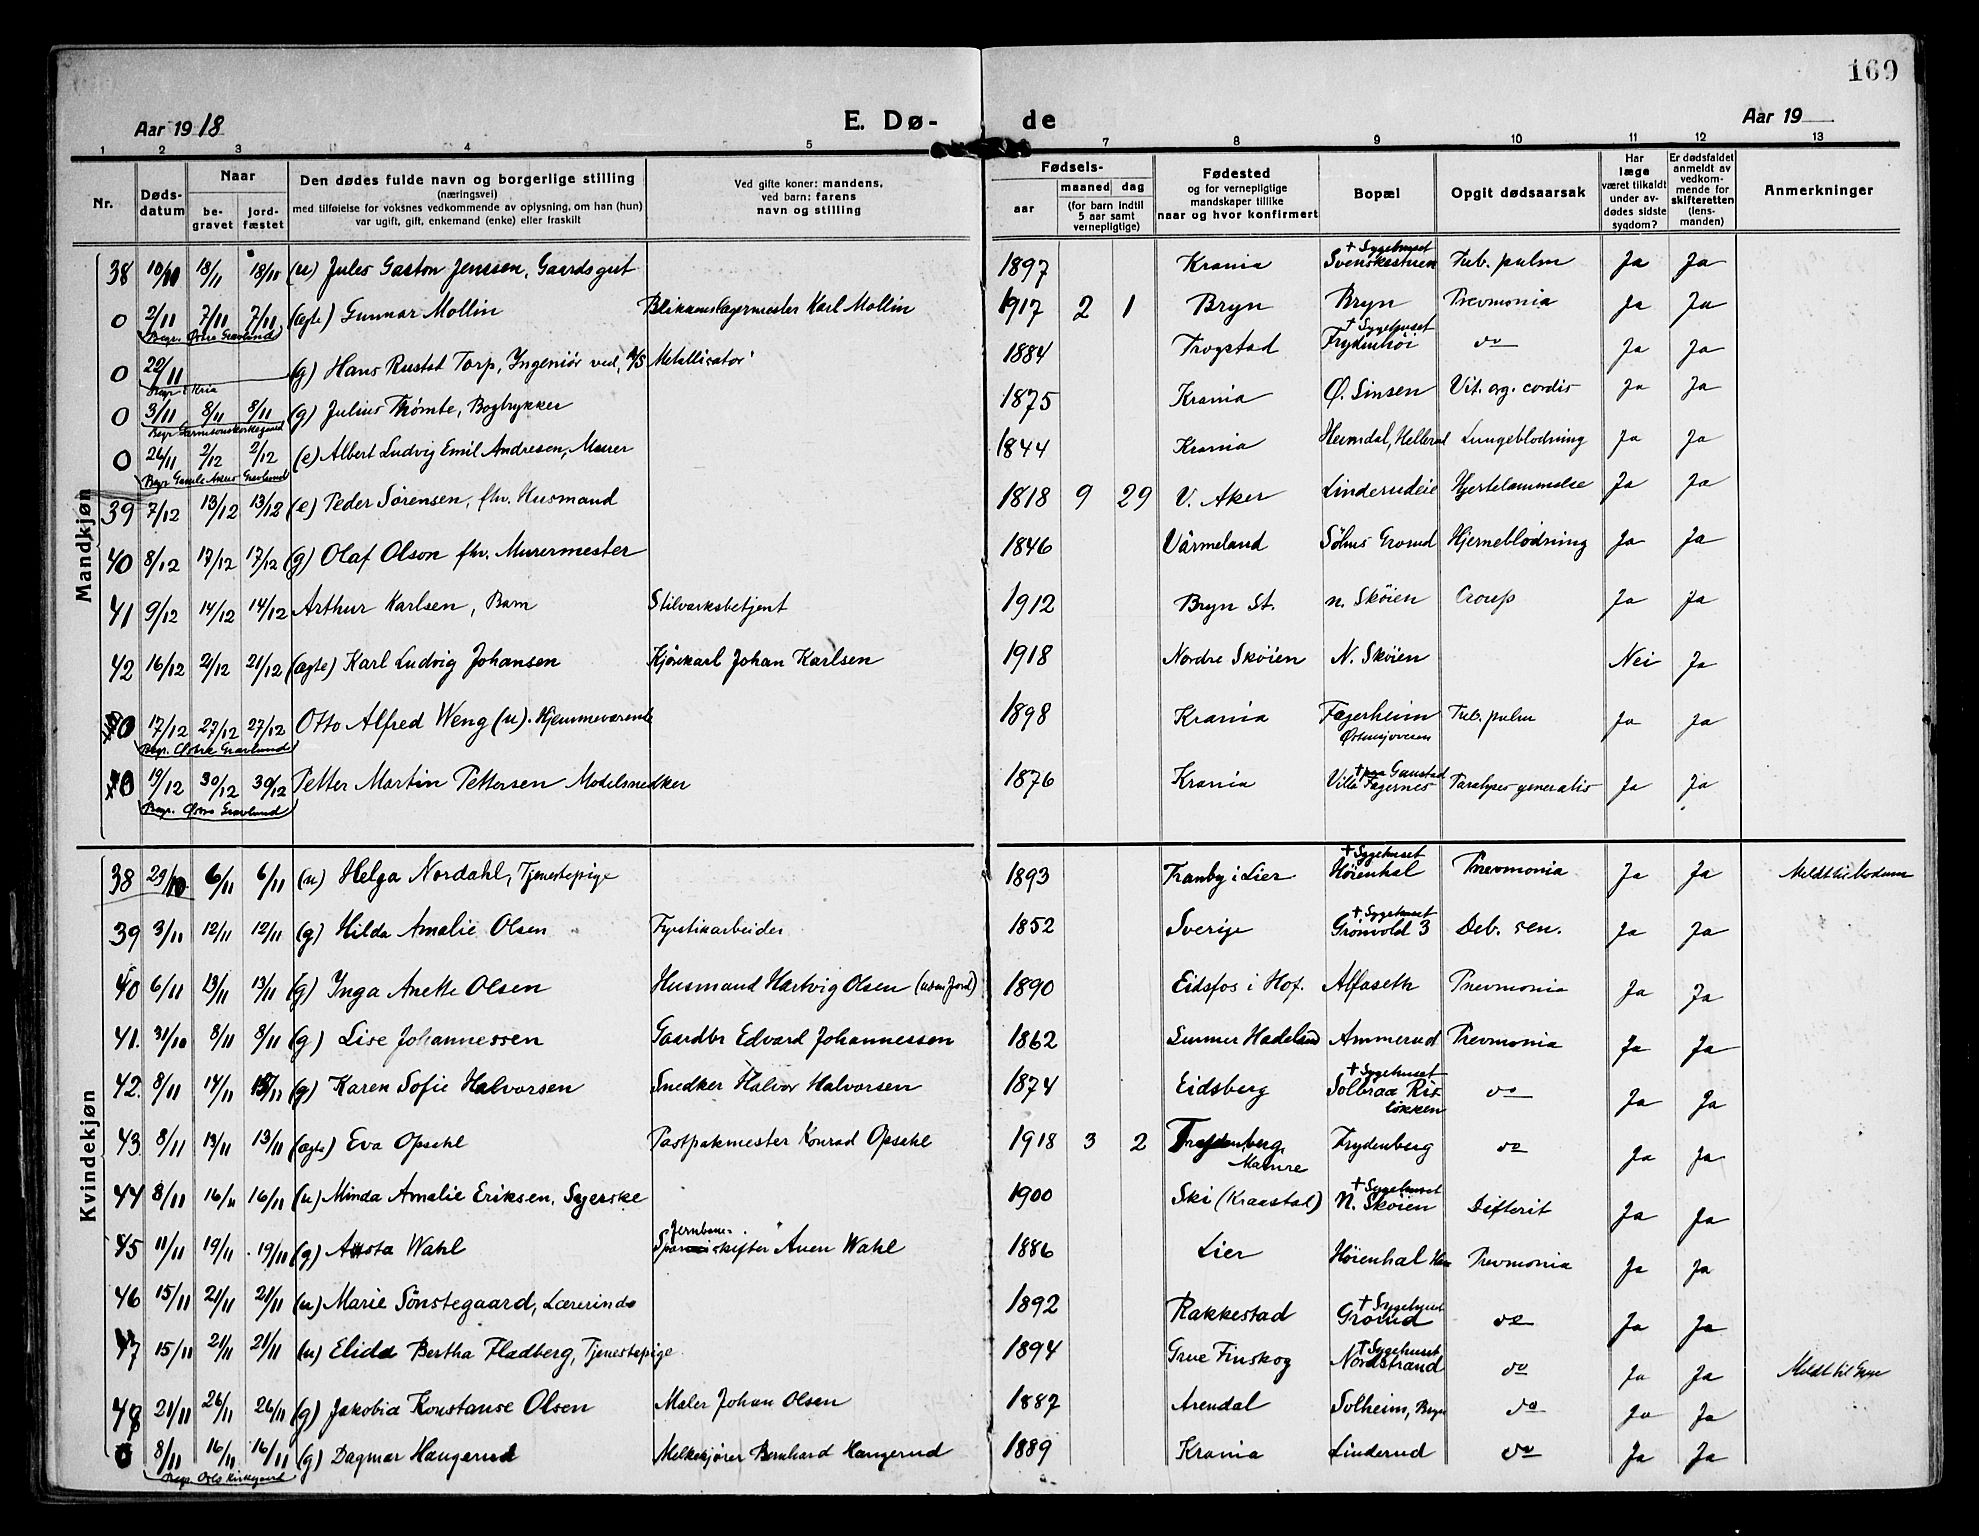 169
Aar 1918 E. Dø- de Aar 19
1 2 3 4 5 7 8 9 10 11 12 13
Nr.
Døds-datum
Naar
be-gravet
jord-fæstet
Den dødes fulde navn og borgerlige stilling
(næringsvei)
med tilføielse for voksnes vedkommende av oplysning, om han (hun)
var ugift, gift, enkemand (enke) eller fraskilt
Ved gifte koner: mandens,
ved barn: farens
navn og stilling
Fødsels-
aar
maaned dag
(for barn indtil
5 aar samt
vernepligtige)
Fødested
og for vernepligtige
mandskaper tillike
naar og hvor konfirmert
Bopæl
Opgit dødsaarsak
Har
læge
været tilkaldt
under av-
dødes sidste
sygdom?
Er dødsfaldet
anmeldt av
vedkom-
mende for
skifteretten
(lens-
manden)
Anmerkninger
Mandkjøn
38 10/10 18/11 18/11 (u) Jules Gaston Jenssen, Gaardsgut 1897 Krania + Sygehuset Svenskestuen Tub. pulm Ja Ja
0 2/11 7/11 7/11 (ægte) Gunnar Mollin Blikkenslagermester Karl Mollin 1917 2 1 Bryn Bryn Pnevmonia Ja Ja
Begr. Østre Gravlund
0 22/11 (g) Hans Rustad Torp, Ingeniør ved A/S Metallisator 1884 Trogstad + Sygehuset Frydenhøi do Ja Ja
Begr. i Kria
0 3/11 8/11 8/11 (g) Julius Thømte, Bogtrykker 1875 Krania Ø. Sinsen Vit. org. cordis Ja Ja
Begr. Garnisonskirkegaard
0 26/11 2/12 2/12 (e) Albert Ludvig Emil Andresen, Murer 1844 Krania Heimdal, Hellerud Lungeblødning Ja Ja
Begr. Gamle Akers Gravlund
39 7/12 13/12 13/12 (e) Peder Sørensen, fhv. Husmand 1818 9 29 V. Aker Linderudeie Hjertelammelse Ja Ja
40 8/12 17/12 17/12 (g) Olaf Olson fhv. Murermester 1846 Värmeland Sölnes Grorud Hjerneblödning Ja Ja
41 9/12 14/12 14/12 Arthur Karlsen, Barn Stilverksbetjent 1912 Bryn St. n. Skøien Croup Ja Ja
42 16/12 21/12 21/12 (ægte) Karl Ludvig Johansen Kjørekarl Johan Karlsen 1918 Nordre Skøien N. Skøien Nei Ja
0 17/12 27/12 27/12 Otto Alfred Weng (u). Hjemmeværende 1898 Krania Fagerheim Østensjøveien Tub. pulm Ja Ja
Begr. Østre Gravlund
0 19/12 30/12 30/12 Petter Martin Pettersen Modelsnedker 1876 Krania + paa Gaustad Villa Fagernes Paralyses generalis Ja Ja
Begr. Østre Gravlund
Kvindekjøn
38 29/10 6/11 6/11 (u) Helga Nordahl, Tjenestepige 1893 Tranby i Lier + Sygehuset Høienhal Pnevmonia Ja Ja Meldt til Modum
39 3/11 12/11 12/11 (g) Hilda Amalie Olsen Fyrstikarbeider 1852 Sverige + Sygehuset Grönvold 3 Deb. sen. Ja Ja
40 6/11 13/11 13/11 (g) Inga Anette Olsen Husmand Hartvig Olsen (uden jord) 1890 Eidsfos i Hof. Alfaseth Pnevmonia Ja Ja
41. 31/10 8/11 8/11 (g) Lise Johannessen Gaardbr Edvard Johannessen 1862 Lunner Hadeland Ammerud Pnevmonia Ja Ja
42. 8/11 14/11 15/11 (g) Karen Sofie Halvorsen Snedker Halvor Halvorsen 1874 Eidsberg + Sygehuset Solbraa Ris løkken do Ja Ja
43. 8/11 13/11 13/11 (ægte) Eva Opsehl Postpakmester Konrad Opsehl 1918 3 2 Frydenberg, Malmre Frydenberg do Ja Ja
44 8/11 16/11 16/11 (u) Minda Amalie Eriksen, Syerske 1900 Ski (Kraastad) + Sygehuset N. Skøien Difterit Ja Ja
45 11/11 19/11 19/11 (g) Asta Wahl Jernbane- Sporskifter Auen Wahl 1886 Lier Høienhal Pnevmonia Ja Ja
46 15/11 21/11 21/11 (u) Marie Sönstegaard, Lærerinde 1892 Rakkestad + Sygehuset Grorud do Ja Ja
47 15/11 21/11 21/11 (u) Elida Bertha Fladberg, Tjenestepige 1894 Grue Finskog + Sygehuset Nordstrand do Ja Ja Meldt til Grue
48 21/11 26/11 26/11 (g) Jakobia Konstanse Olsen Maler Johan Olsen 1887 Arendal Solheim, Bryn do Ja Ja
0 8/11 16/11 16/11 (g) Dagmar Haugerud Melkekjører Bernhard Haugerud 1889 Krania Linderud do Ja Ja
Begr. Oslo Kirkegaard